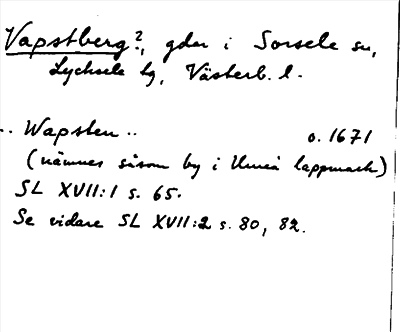 Vapstberg?, gdar i Sorsele sn,
Lycksele tg, Västerb. l.
.. Wapsten .. o. 1671
(nämnes såsom by i Umeå lappmark)
SL XVII:1 s. 65.
Se vidare SL XVII:2 s. 80, 82.